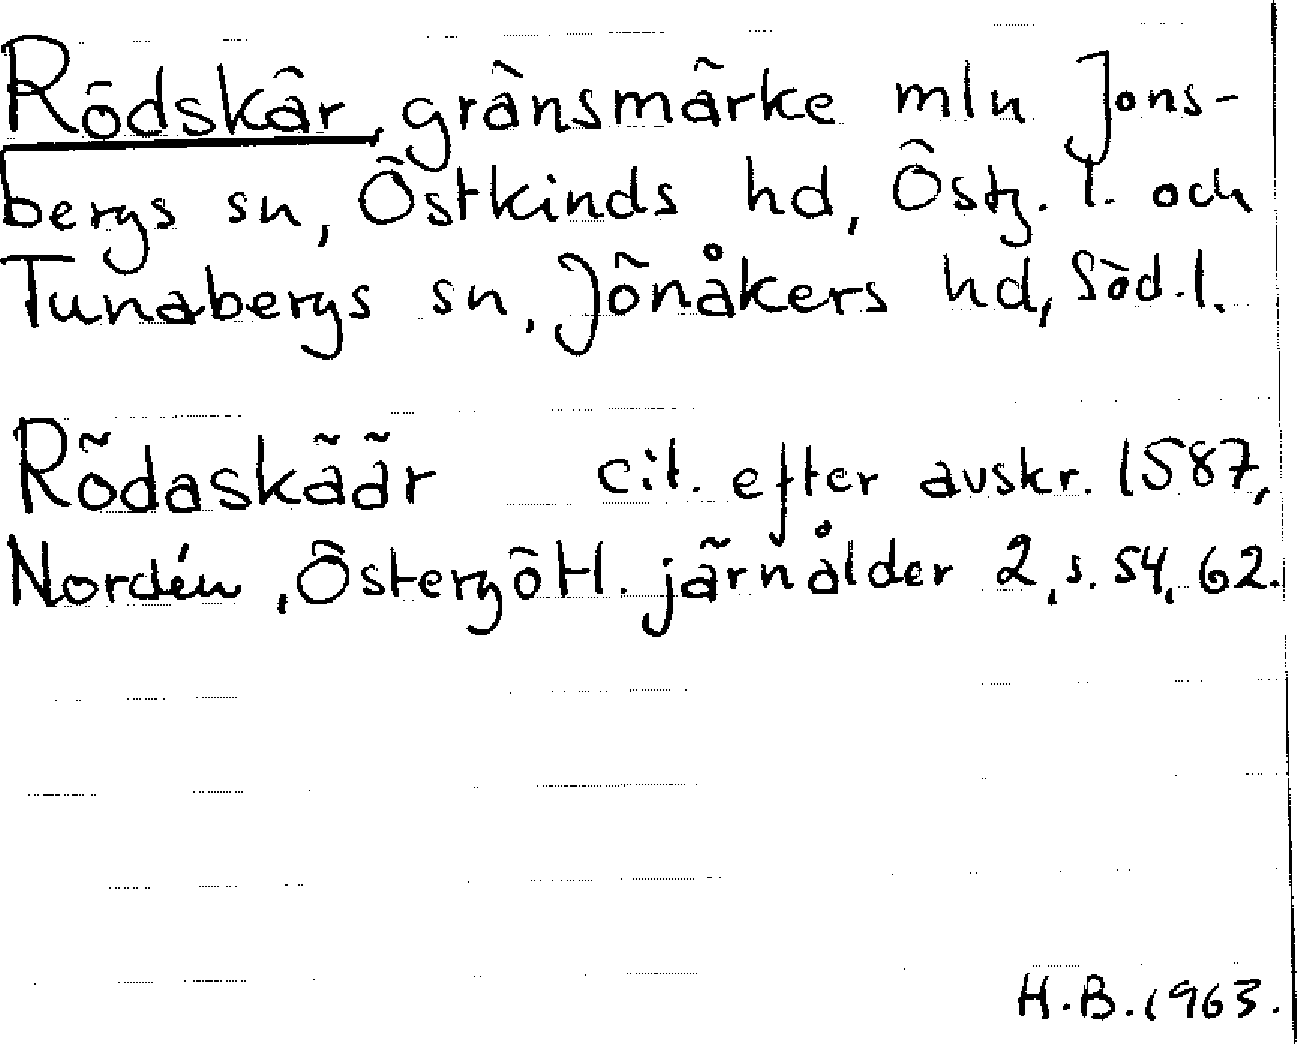 Rödskär, gränsmärke mln Jons-
bergs sn, Östkinds hd, Östg. l. och
Tunabergs sn, Jönåkers hd, Söd. l.
Rödaskäär cit. efter avskr. 1587,
Nordén, Östergötl. järnålder 2, s. 54, 62.
H.B. 1963.